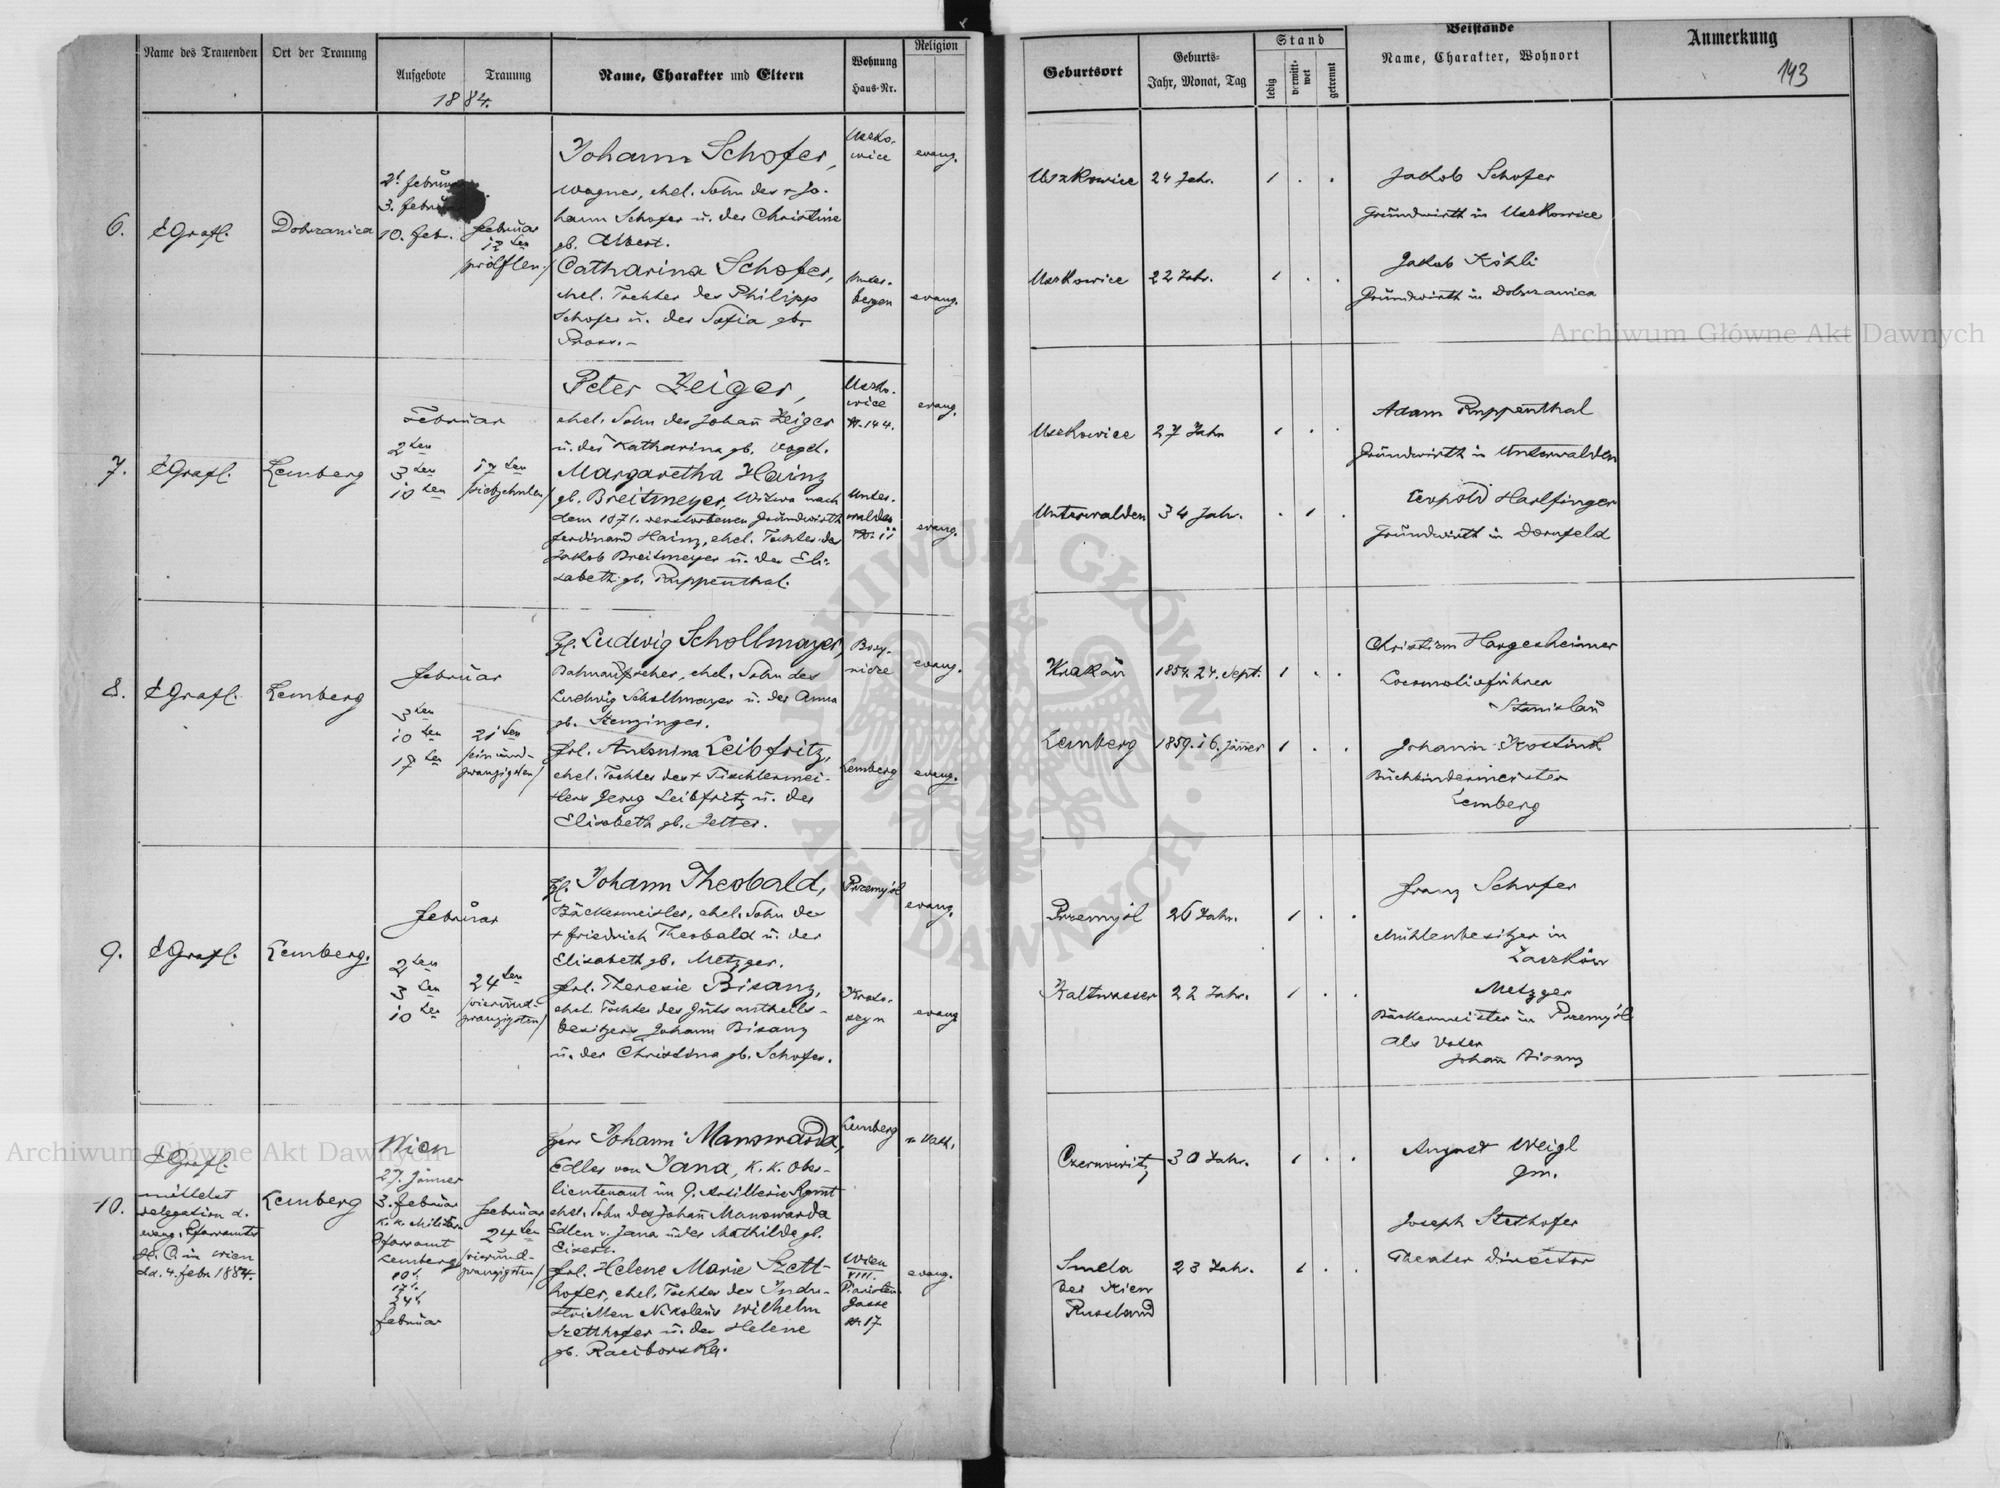 Name des Trauenden
Ort der Trauung
Aufgebote
Trauung
1884.
Name, Charakter und Eltern
Wohnung
Haus-Nr.
Religion
Geburtsort
Geburts-
Jahr, Monat, Tag
Stand
ledig
verwitt-
wet
getrennt
Beistände
Name, Charakter, Wohnort
Anmerkung
143
6.
EGrafl.
Dobrzanica
3. Februar
10. Febr.
Februar
12ten
/zwölften/
Johann Schofer,
Wagner, ehel. Sohn des + Jo-
hann Schofer u. der Christine
gb. Albert.
Catharina Schofer,
ehel. Tochter des Philipp
Schofer u. der Sofia gb.
Uszko-
wice
Unter-
bergen
evang.
evang.
Uszkowice
24 Jahr.
1 . .
Uszkowice
22 Jahr.
1 . .
Jakob Schofer
Grundwirth in Uszkowice
Jakob Köhli
Grundwirth in Dobrzanica
7.
EGrafl.
Lemberg
Februar
2ten
3ten
10ten
17ten
/siebzehnten/
Peter Zeiger,
ehel. Sohn des Johann Zeiger
u. der Katharina gb. Vogel.
Margaretha Hainz
gb. Breitmeyer, Witwe nach
dem 1871. verstorbenen Grundwirth
Ferdinand Hainz, ehel. Tochter des
Jakob Breitmeyer u. der Eli-
sabeth gb. Ruppenthal.
Uszko-
wice
N. 144.
Unter-
walden
N. 11
evang.
evang.
Uszkowice
27 Jahr
1 . .
Unterwalden
34 Jahr.
. 1 .
Adam Ruppenthal
Grundwirth in Unterwalden
Leopold Harlfinger
Grundwirth in Dornfeld
8.
EGrafl.
Lemberg
Februar
3ten
10ten
17ten
21ten
/einund-
zwanzigsten/
H. Ludwig Schollmayer,
Bahnaufseher, ehel. Sohn des
Ludwig Schollmayer u. der Anna
gb. Stenzinger.
Frl. Antonina Leibfritz,
ehel. Tochter des + Tischlermei-
sters Georg Leibfritz u. der
Elisabeth gb. Jetter.
Lemberg
evang.
evang.
Krakau
1854. 24. Sept.
1 . .
Lemberg
1859. 16. Jänner
1 . .
Christian Hargesheimer
Locomotivführer
Stanislau
Johann Kostiuk
Buchbindermeister
Lemberg
9.
EGrafl.
Lemberg.
Februar
2ten
3ten
10ten
24ten
/vierund-
zwanzigsten/
H. Johann Theobald,
Bäckermeister, ehel. Sohn des
+ Friedrich Theobald u. der
Elisabeth gb. Metzger.
Frl. Theresie Bisanz,
ehel. Tochter des Gutsantheils-
besitzers Johann Bisanz
u. der Christina gb. Schofer.
Przemysl
evang.
evang
Przemysl
26 Jahr.
1 . .
Kaltwasser
22 Jahr.
1 . .
Franz Schofer
Mühlenbesitzer in
Laszków
Metzger
Bäckermeister in Przemysl
als Vater
Johann Bisanz
10.
EGrafl.
mittelst
Delegation d.
evang. Pfarramtes
H. C. in Wien
dd. 4. Febr. 1884.
Lemberg
Wien
27. Jänner
3. Februar
K. K. Militär
Pfarramt
Lemberg
10t.
17t.
24t.
Februar
Februar
24ten
/vierund-
zwanzigsten/
Herr Johann Manowarda,
Edler von Jana, K. K. Ober-
lieutenant im 9. Artillerie Rgmt
ehel. Sohn des Johann Manowarda
Edlen v. Jana u. der Mathilde gb.
Eisert.
Frl. Helene Marie Szett-
hofer, ehel. Tochter des Indu-
striellen Nikolaus Wilhelm
Szetthofer u. der Helene
gb. Raciborska.
Lemberg
Wien
VIII.
Piaristen
Gasse
N. 17
evang.
Czernowitz
30 Jahr.
1 . .
Smela
bei Kiew
Russland
23 Jahr.
1 . .
August Weigl
Joseph Stethofer
Theater Director
Archiwum Główne Akt Dawnych
Archiwum Główne Akt Dawnych
ARCHIWUM GŁÓWNE AKT DAWNYCH